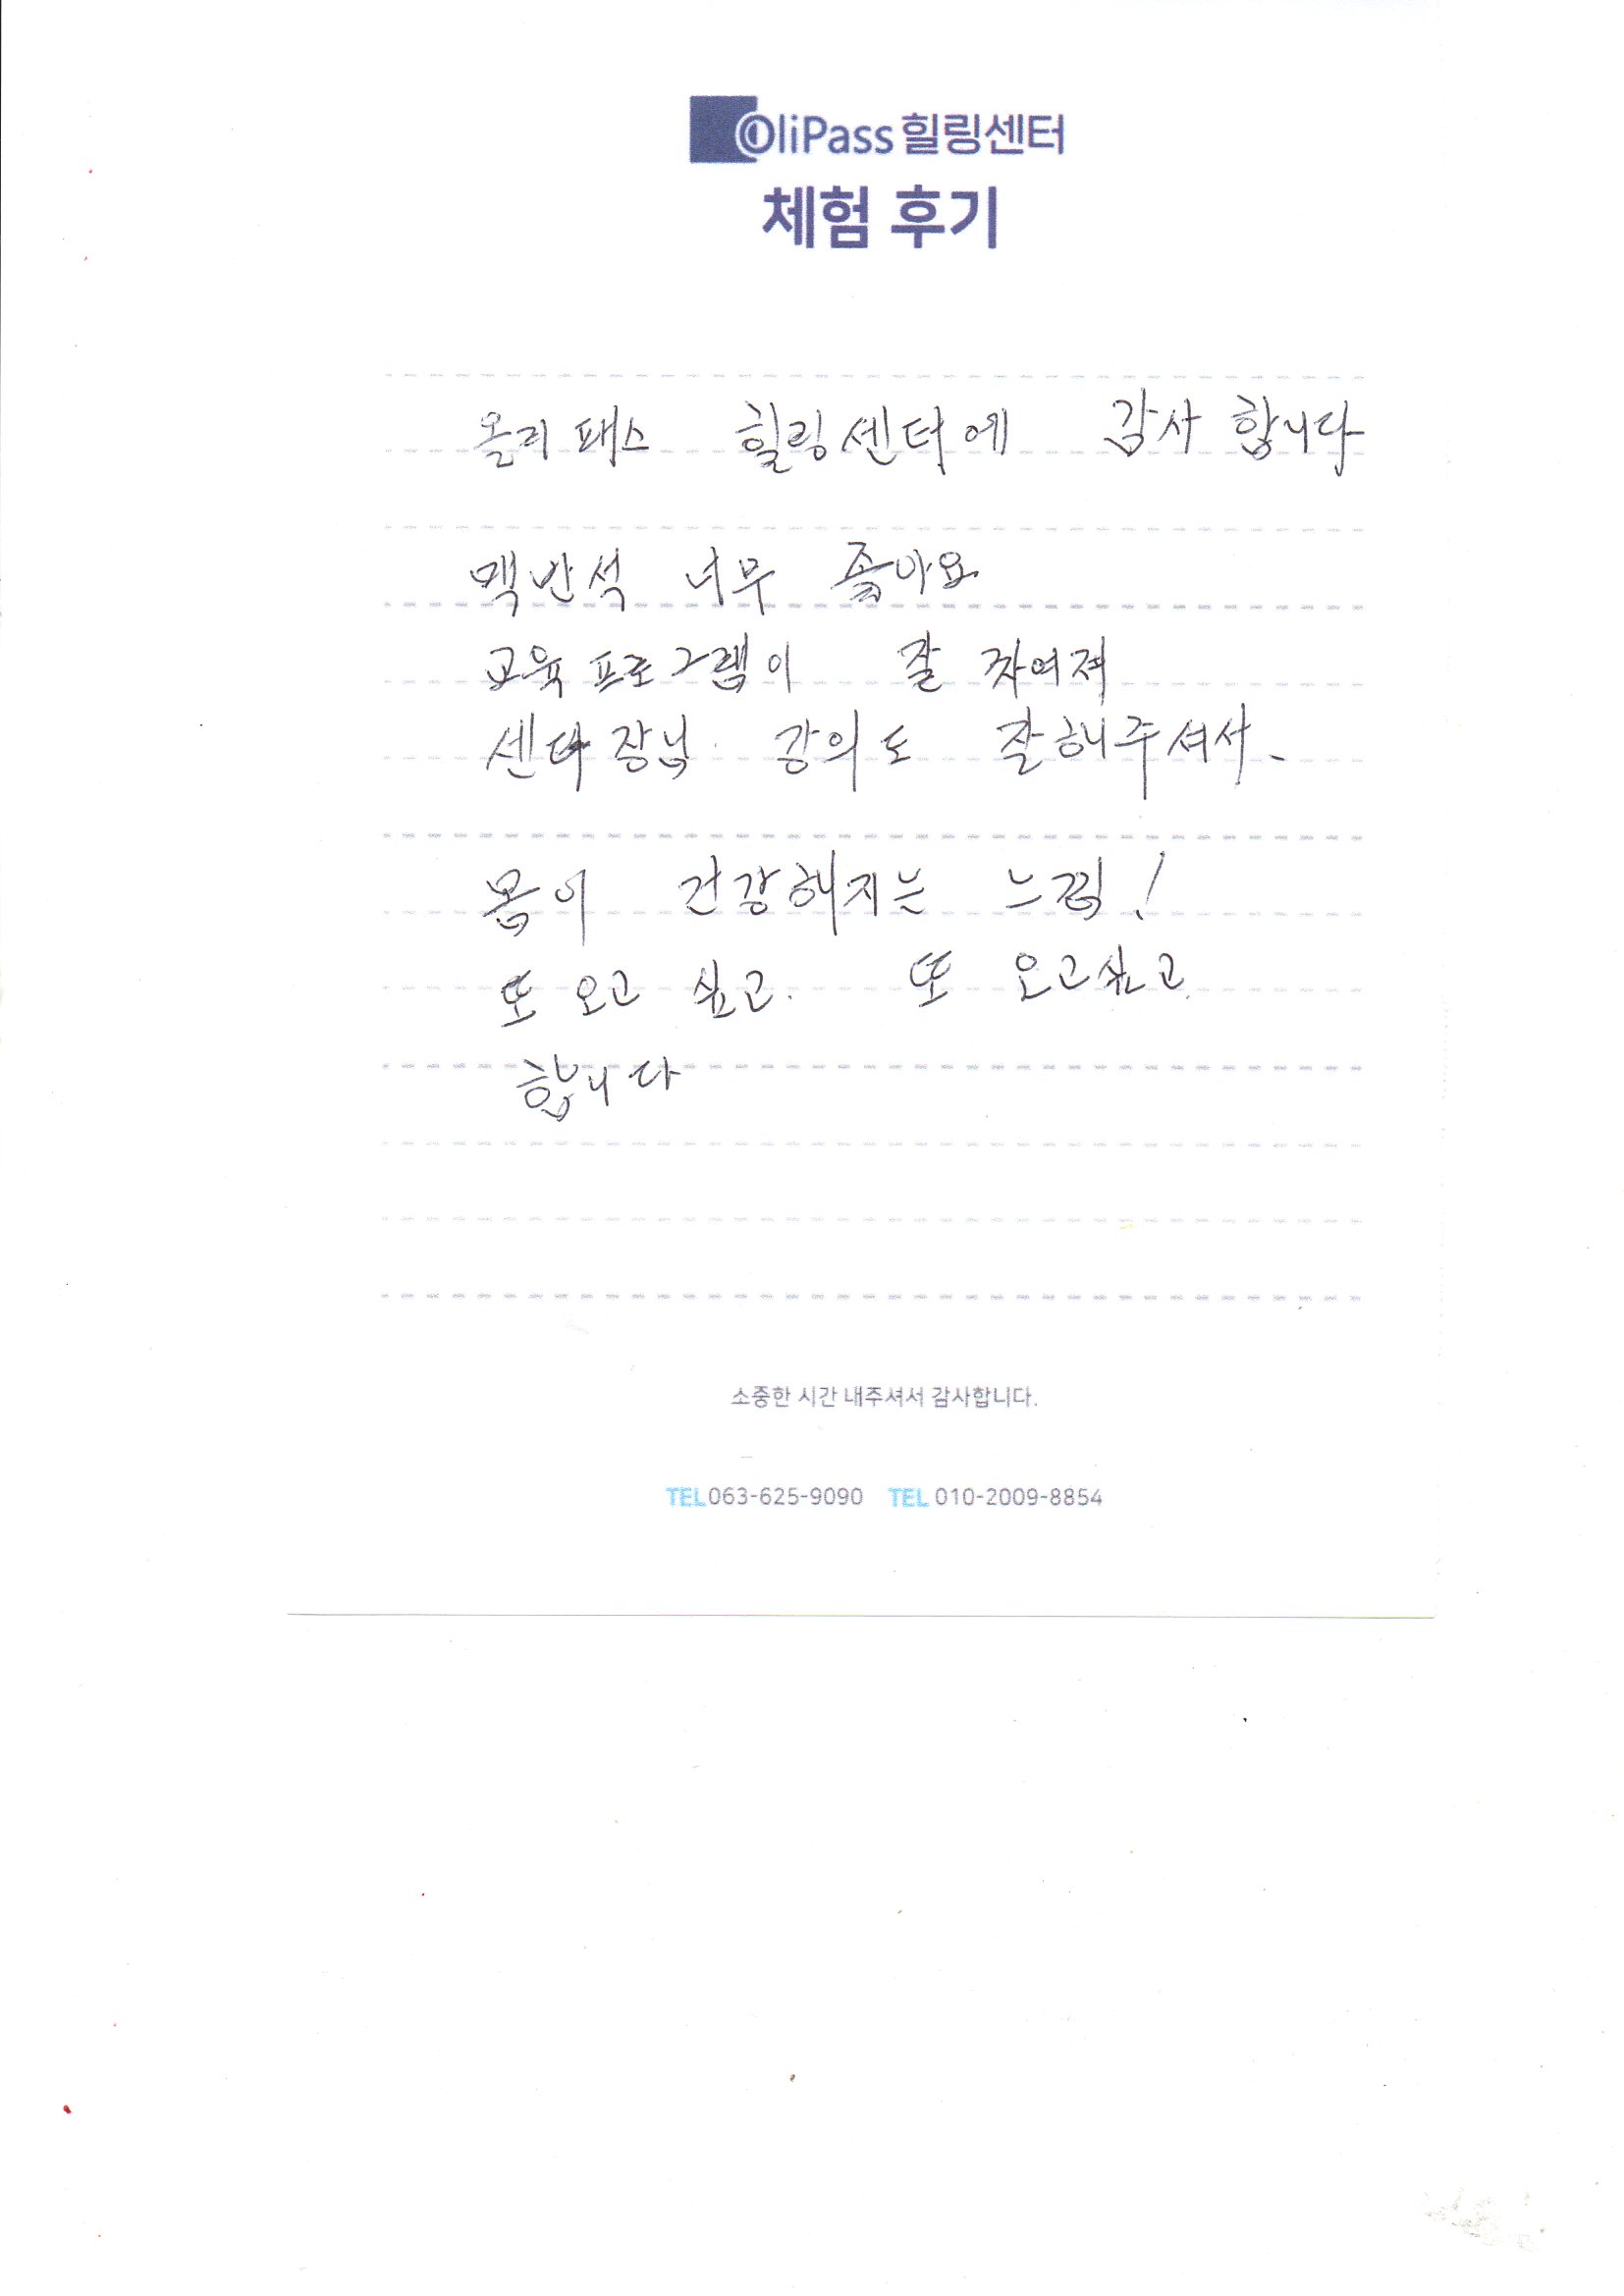 OliPass 힐링센터
체험 후기
올리패스 힐링센터에 감사합니다
맥반석 너무 좋아요
교육프로그램이 잘 짜여져
센터장님 강의도 잘해주셔서.
몸이 건강해지는 느낌!
또 오고 싶고. 또 오고싶고.
합니다
소중한 시간 내주셔서 감사합니다.
TEL 063-625-9090 TEL 010-2009-8854